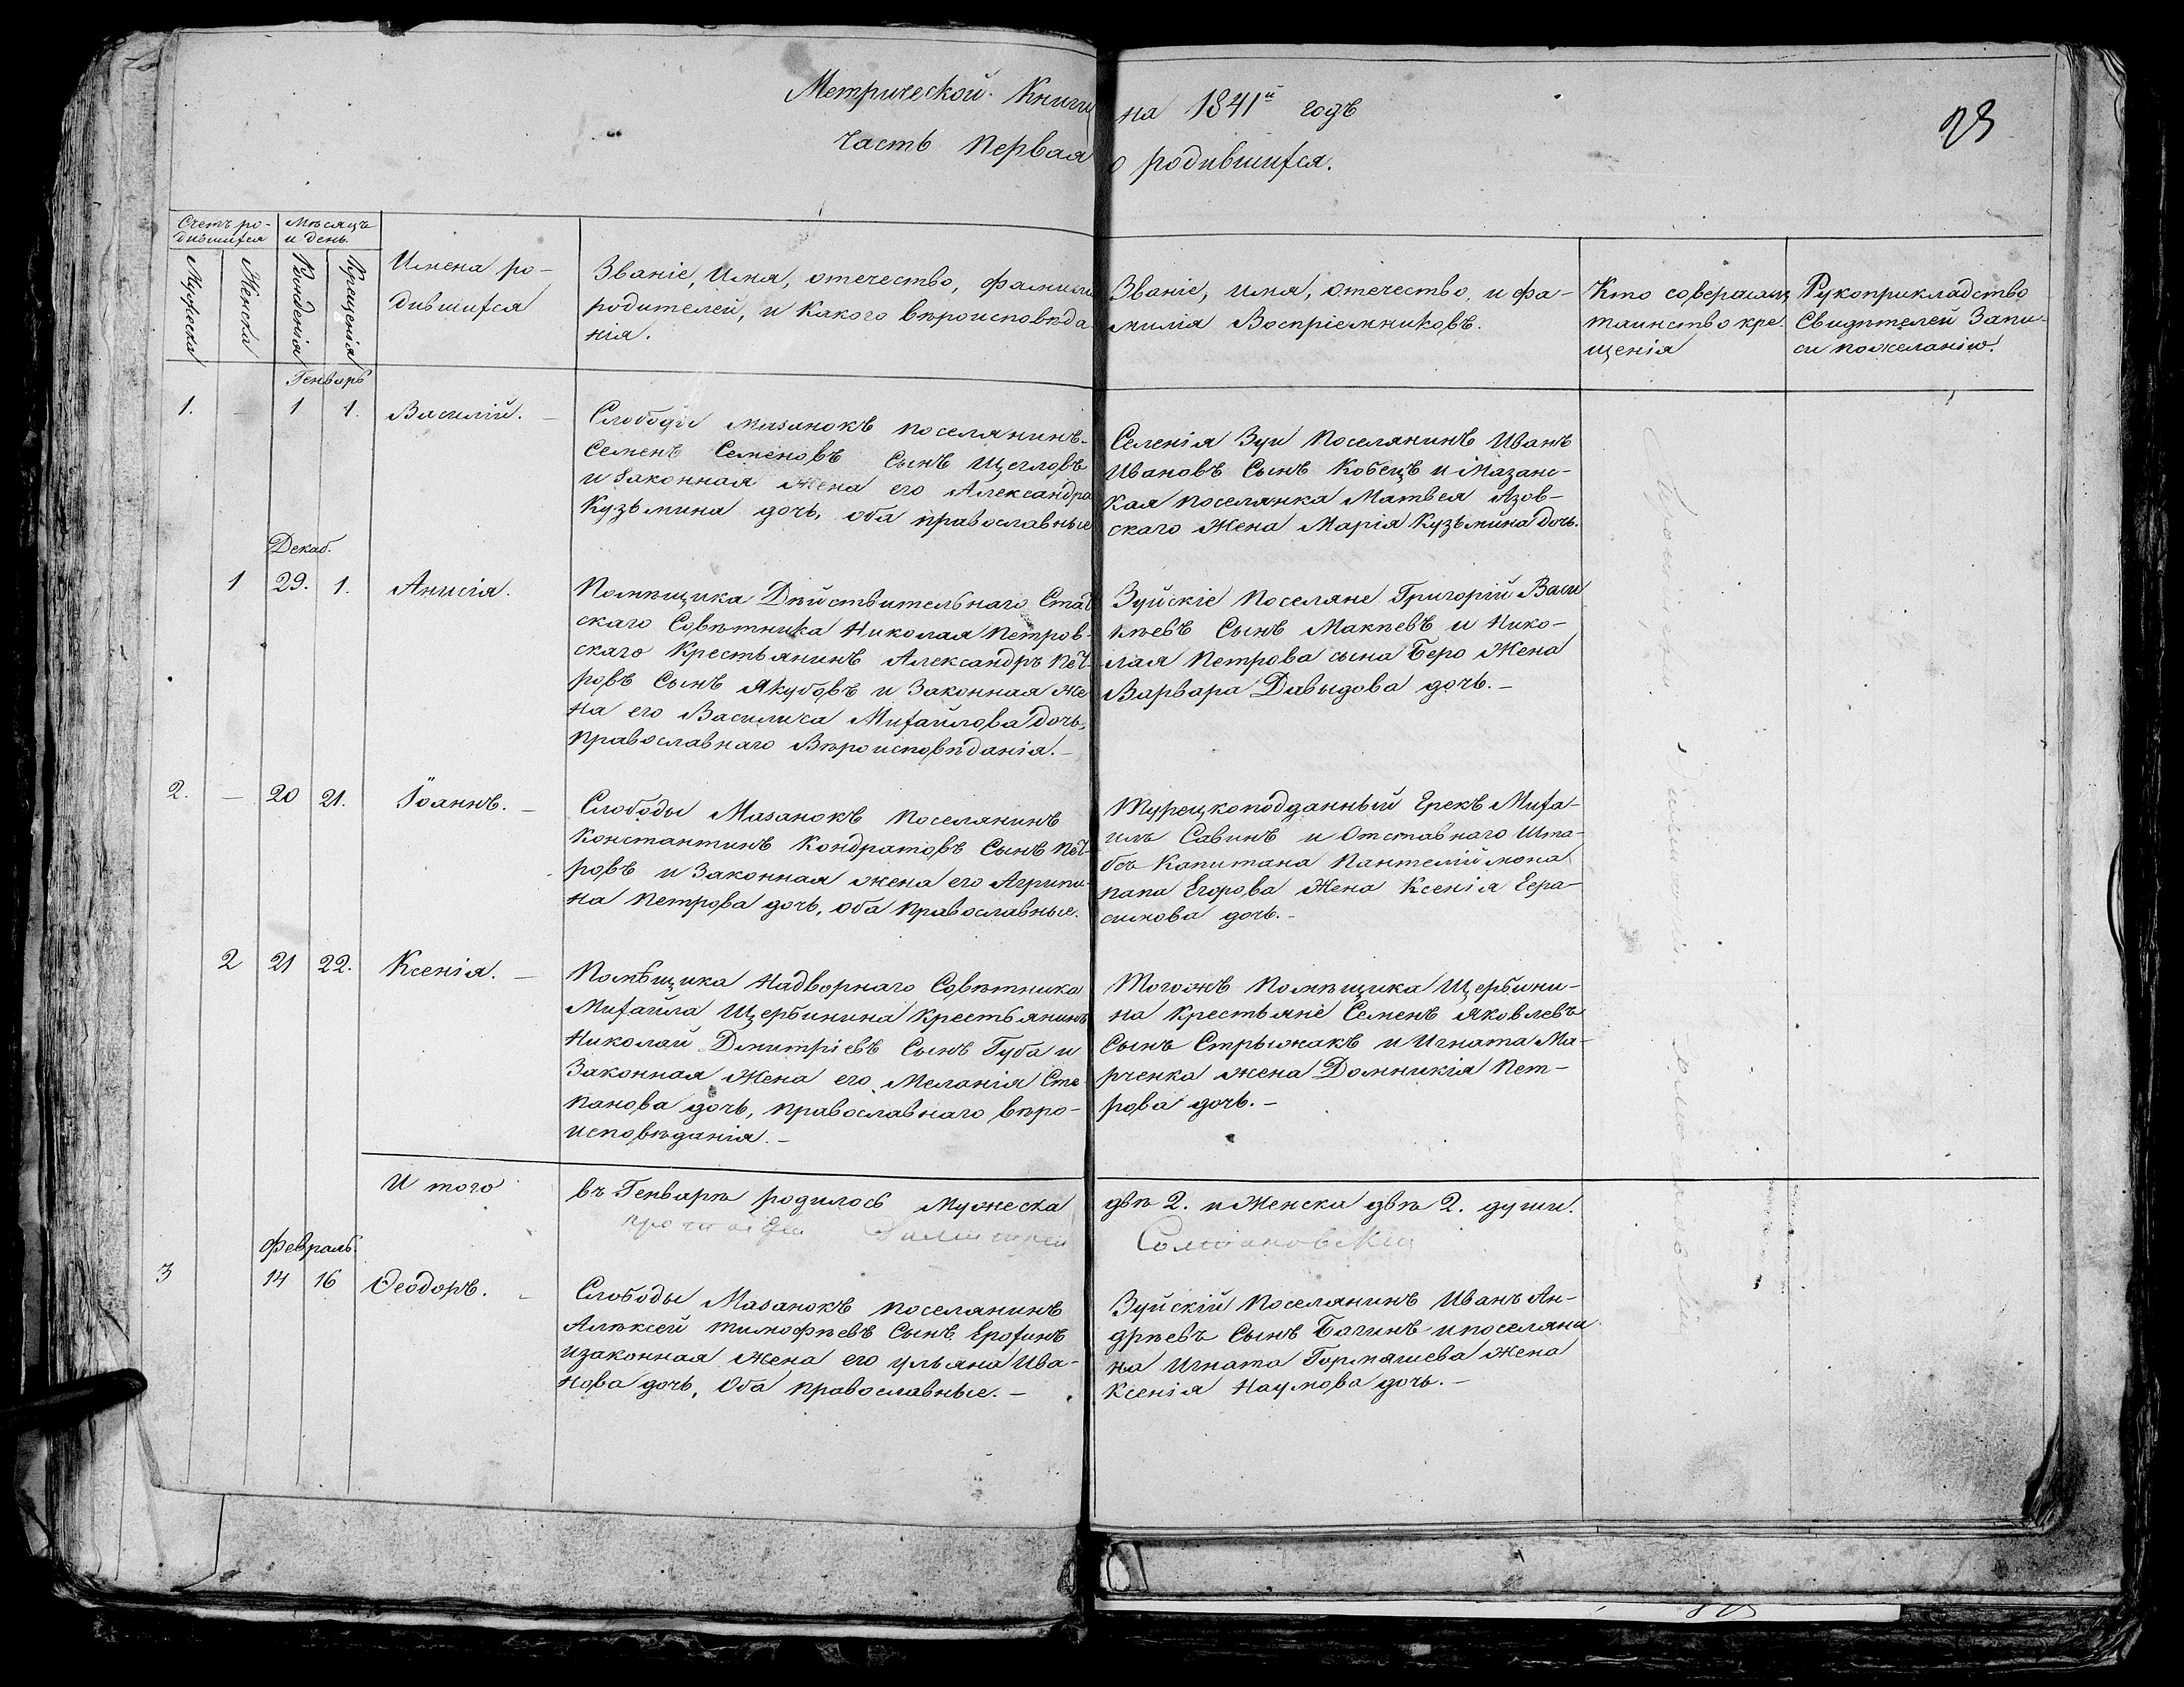 Метрической Книги на 1841й годъ
Часть Первая о родившихся.
23
Счетъ ро-
дившихся
Мѣсяцъ
и день.
Мужеска
Женска
Рожденія
Крещенія
Имена ро-
дившихся
Званіе, Имя, отечество, фамилія
родителей, и какого вѣроисповѣда-
нія.
Званіе, имя, отечество, и фа-
милія Воспріемниковъ.
Кто совершалъ
таинство кре-
щенія
Рукоприкладство
Свидѣтелей Запи-
си пожеланію.
Генварь
1. - 1 1. Василій. -
Слободы Мазанокъ поселянинъ
Семенъ Семеновъ Сынъ Щегловъ
и Законная Жена его Александра
Кузьмина дочь, оба православные
Селенія Зуи Поселянинъ Иванъ
Ивановъ Сынъ Кобецъ и Мазанс-
кая поселянка Матвея Азов-
скаго Жена Марія Кузьмина дочь.
Декаб.
1 29. 1. Анисія.
Помѣщика Дѣйствительнаго Стат
скаго Совѣтника Николая Петров-
скаго Крестьянинъ Александръ Пет-
ровъ Сынъ Якубовъ и Законная Же
на его Василиса Михайлова дочь,
православнаго Вѣроисповѣданія. -
Зуйскіе Поселяне Григорій Васи
лѣевъ Сынъ Макѣевъ и Нико-
лая Петрова сына Беро Жена
Варвара Давыдова дочь. -
2. - 20 21. Іоаннъ. -
Слободы Мазанокъ Поселянинъ
Константинъ Кондратовъ Сынъ Пет-
ровъ и Законная жена его Агрипи-
на Петрова дочь, оба православные.
Турецкоподданный Грекъ Миха-
илъ Савинъ и Отставнаго Шта-
бсъ Капитана Пантелиймона
папа Егорова Жена Ксенія Гера-
симова дочь. -
2 21 22. Ксенія. -
Помѣщика Надворнаго Совѣтника
Михайла Щербинина Крестьянинъ
Николай Дмитріевъ Сынъ Губа и
Законная Жена его Меланія Сте
панова дочь, православнаго вѣро-
исповѣданія. -
Тогожъ Помѣщика Щербини-
на Крестьяне Семенъ Яковлевъ
Сынъ Стрыжакъ и Игната Ма-
рченка жена Домникія Пет-
рова дочь. -
И того въ Генварѣ родилось Мужеска двѣ 2. и Женска двѣ 2. души.
Февраль.
3 14 16 Ѳеодоръ. -
Слободы Мазанокъ поселянинъ
Алѣксей Тимофѣевъ Сынъ Ерохинъ
изаконная Жена его Ульяна Ива-
нова дочь, Оба православные. -
Зуйскій Поселянинъ Иванъ Ан-
дрѣевъ Сынъ Багинъ ипоселяни
на Игната Гормашева Жена
Ксенія Наумова дочь. -